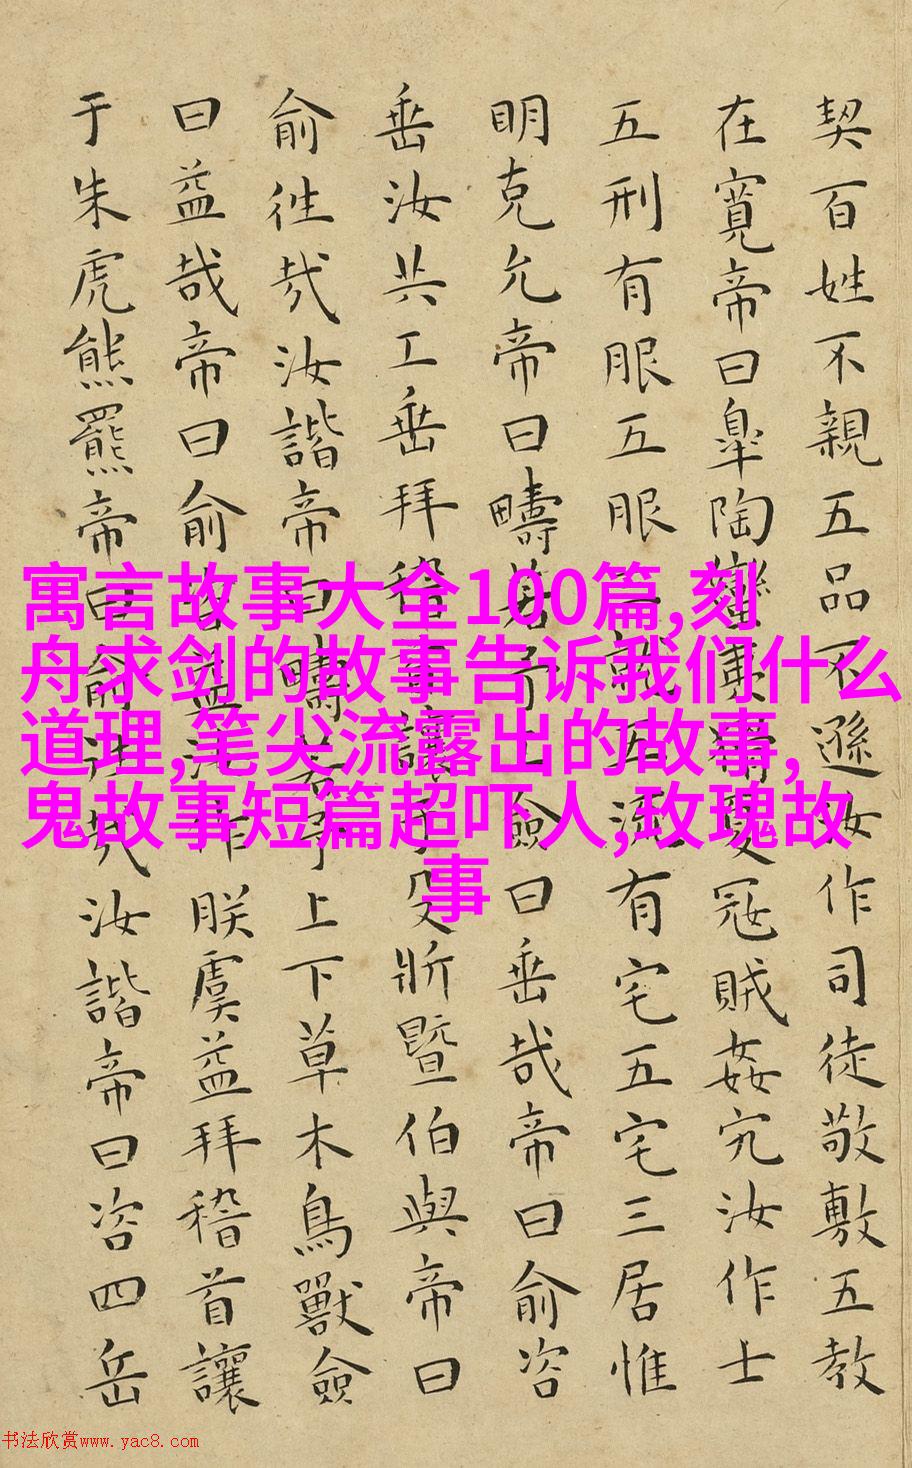 契百姓不親五品不遜汝作司徒敬敷五教
在寬帝曰皐陶蠻夷猾夏冦賊姦宄汝作士
五刑有服五服三就五流有宅五宅三居惟
明克允帝曰疇若予工僉曰垂哉帝曰俞咨
垂汝共工垂拜稽首讓于殳斨暨伯與帝曰
俞往哉汝諧帝曰疇若予上下草木鳥獸僉
曰益哉帝曰俞咨益汝作朕虞益拜稽首讓
于朱虎熊羆帝曰俞往哉汝諧帝曰咨四岳
寓言故事大全100篇,刻
舟求剑的故事告诉我们什么
道理,笔尖流露出的故事,
鬼故事短篇超吓人,玫瑰故
事
书法欣赏www.yac8.com